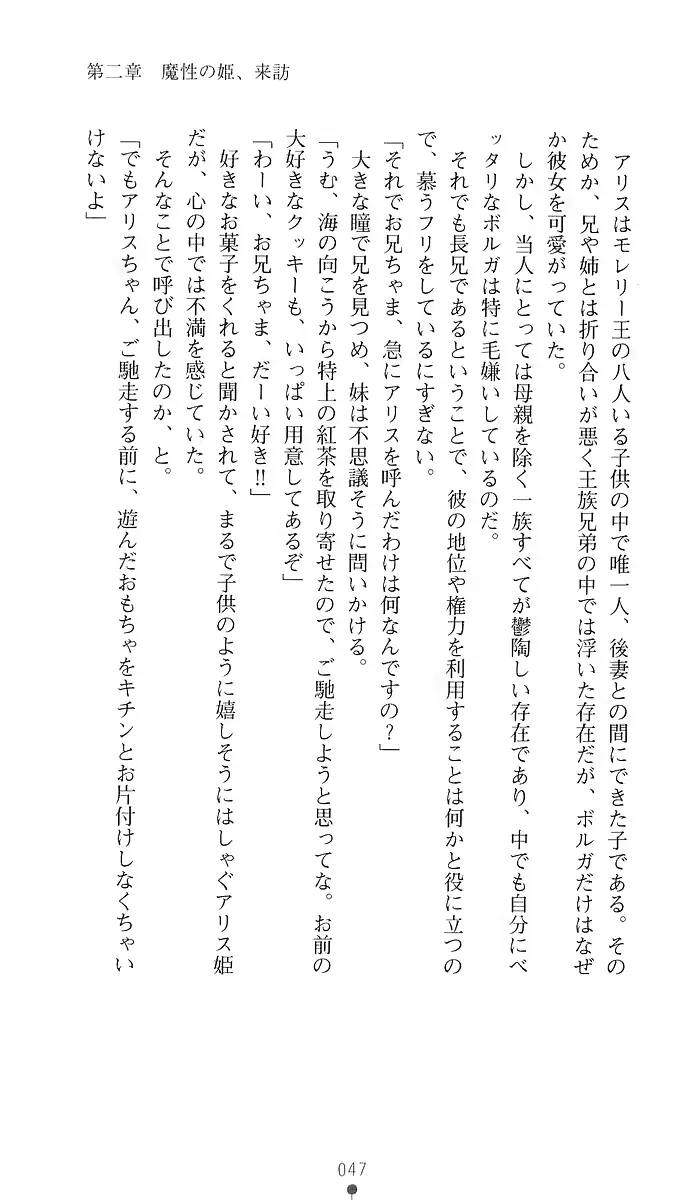 第二章　魔性の姫、来訪
　アリスはモレリー王の八人いる子供の中で唯一人、後妻との間にできた子である。その
ためか、兄や姉とは折り合いが悪く王族兄弟の中では浮いた存在だが、ボルガだけはなぜ
か彼女を可愛がっていた。
　しかし、当人にとっては母親を除く一族すべてが鬱陶しい存在であり、中でも自分にベ
ッタリなボルガは特に毛嫌いしているのだ。
　それでも長兄であるということで、彼の地位や権力を利用することは何かと役に立つの
で、慕うフリをしているにすぎない。
「それでお兄ちゃま、急にアリスを呼んだわけは何なんですの？」
　大きな瞳で兄を見つめ、妹は不思議そうに問いかける。
「うむ、海の向こうから特上の紅茶を取り寄せたので、ご馳走しようと思ってな。お前の
大好きなクッキーも、いっぱい用意してあるぞ」
「わーい、お兄ちゃま、だーい好き!!」
　好きなお菓子をくれると聞かされて、まるで子供のように嬉しそうにはしゃぐアリス姫
だが、心の中では不満を感じていた。
　そんなことで呼び出したのか、と。
「でもアリスちゃん、ご馳走する前に、遊んだおもちゃをキチンとお片付けしなくちゃい
けないよ」
047